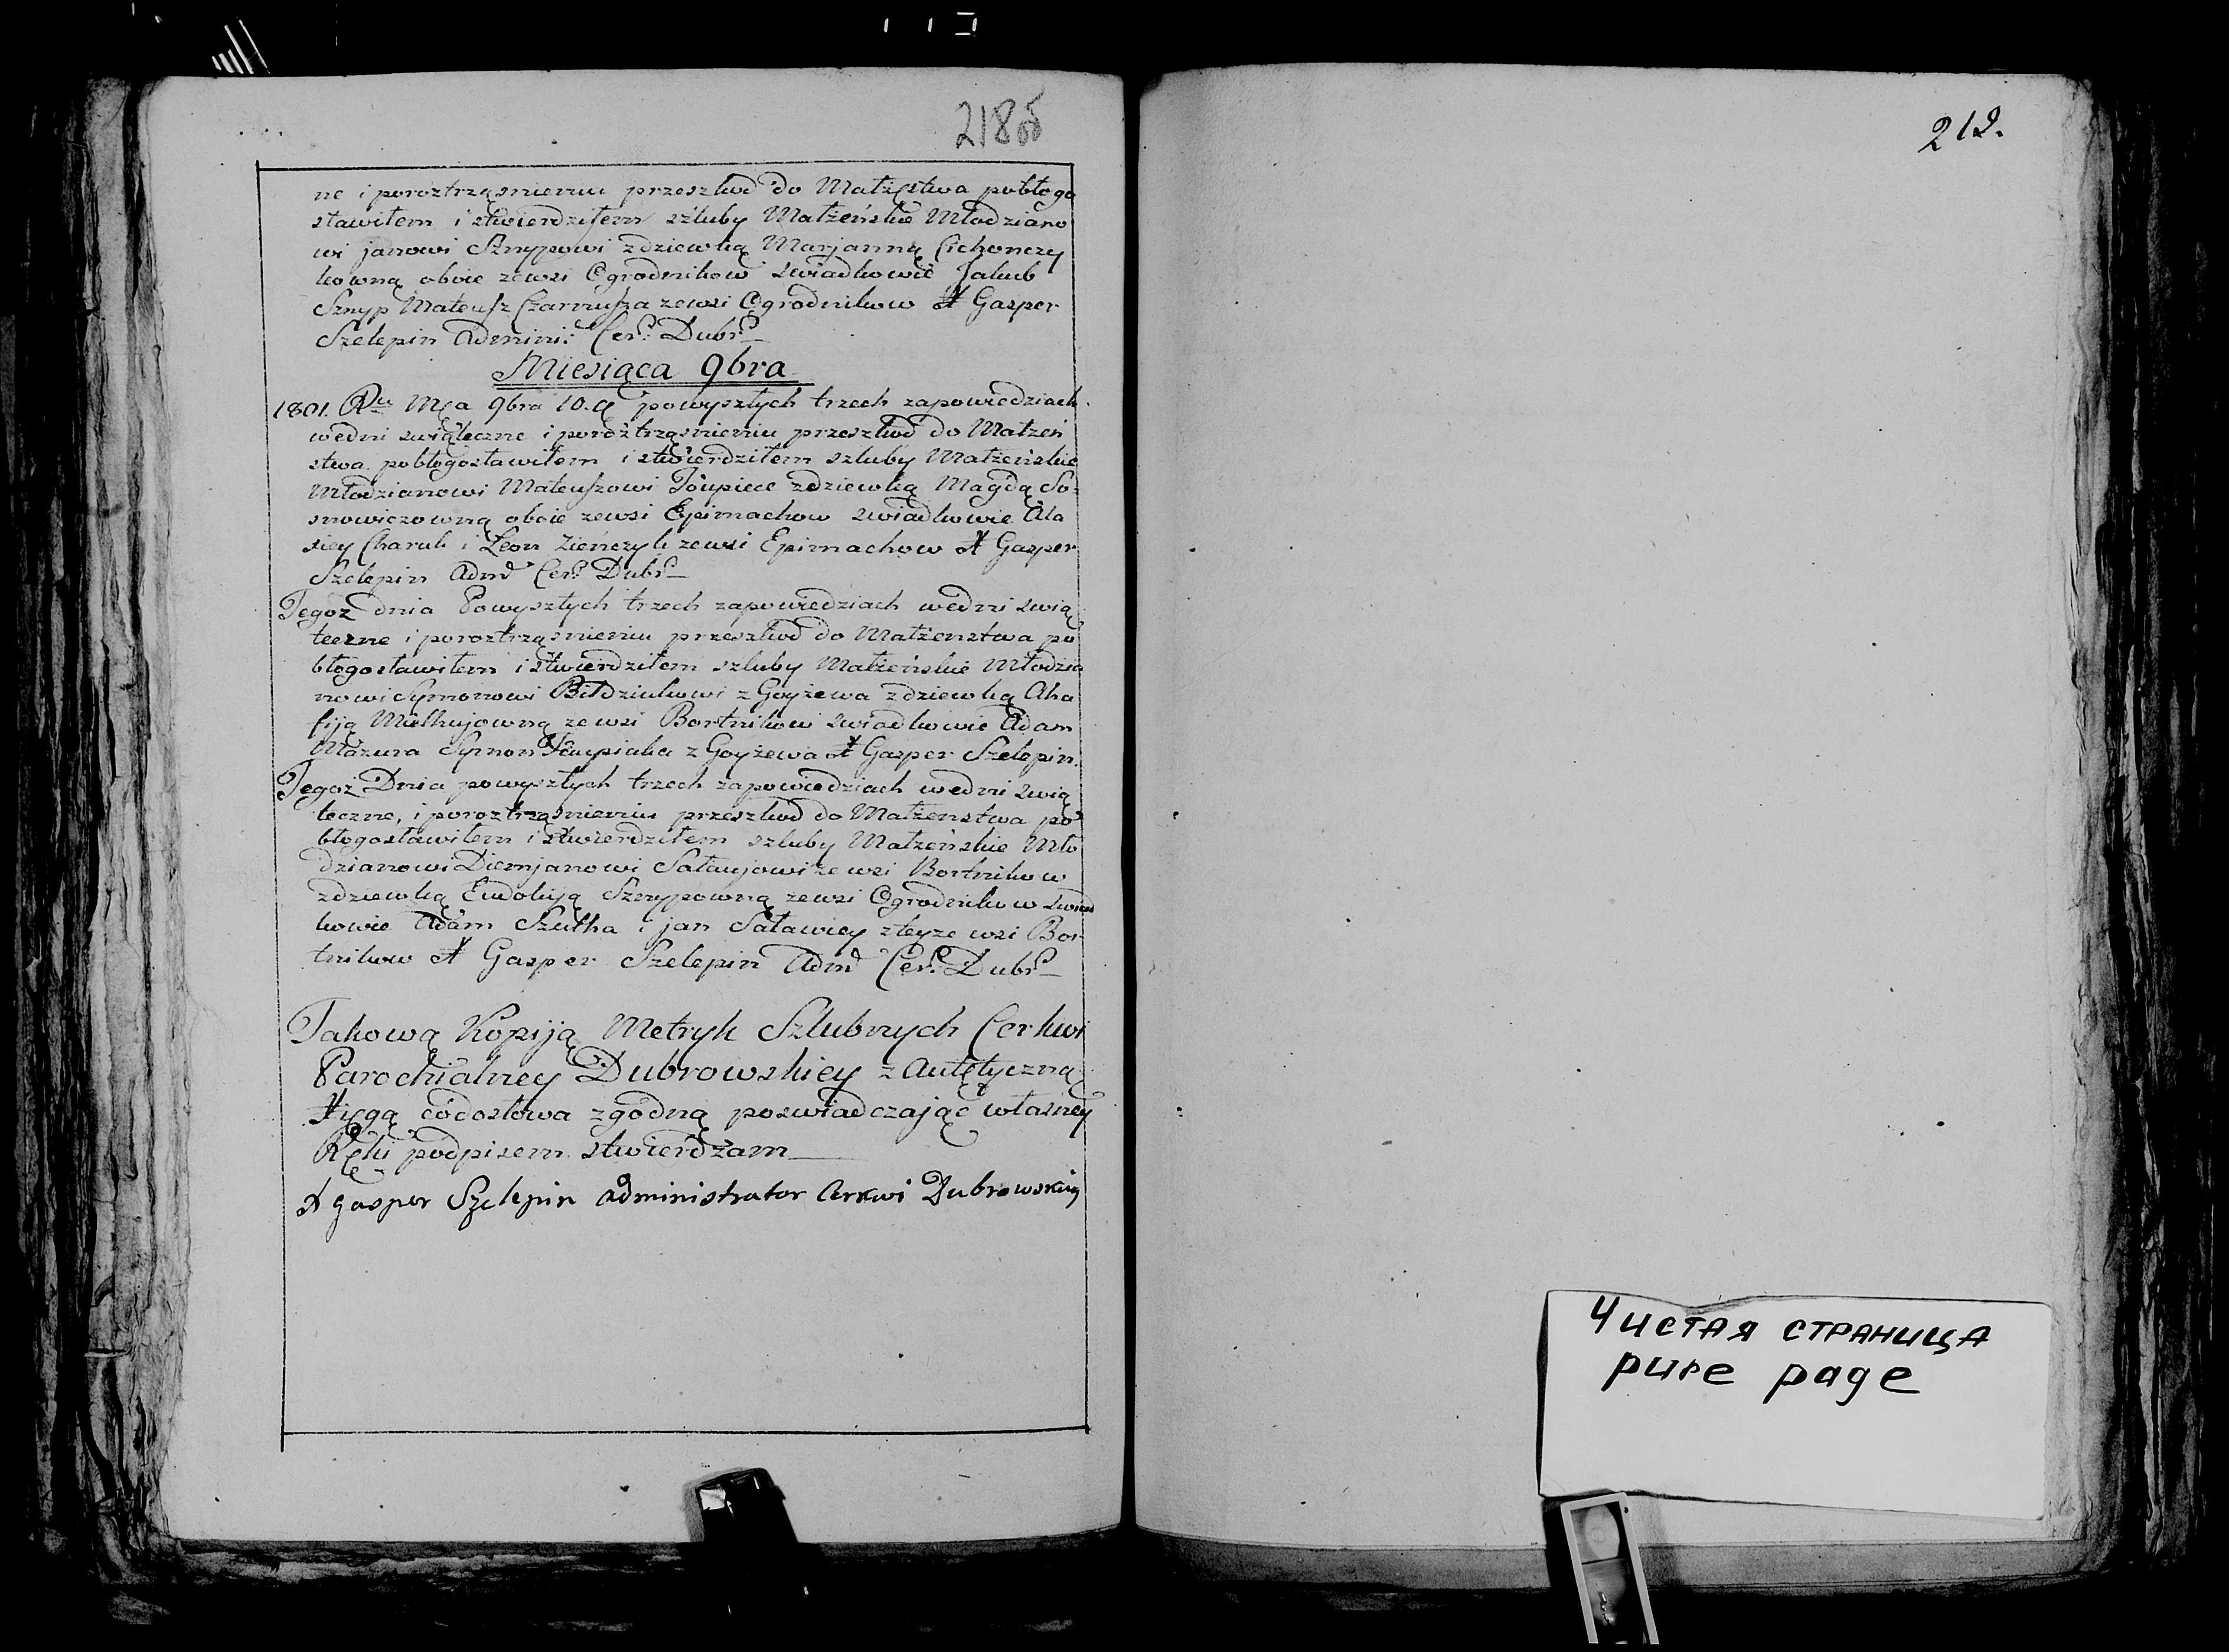 218об
ne i poroztrząsnieniu przeszkod do Małżęstwa pobłogo
sławiłem i stwierdziłem szluby Małżeńskie Młodziano
wi janowi Sznypowi zdziewką Marjanną Cichonczy
kowną oboie zewsi Ogrodnikow swiadkowie Jakub
Sznyp Mateusz Czarnusza zewsi Ogrodnikow X Gasper
Szelepin Admini: Cer: Dubr
Miesiąca 9bra
1801. Ru Mca 9bra 10. powyszłych trzech zapowiedziach
wedni swiąteczne i poroztrząsnieniu przeszkod do Małżeń
stwa pobłogosławiłem i stwierdziłem szluby Małżeńskie
Młodzianowi Mateuszowi zdziewką Magdą So=
snowiczowną oboie zewsi Epimachow swiadkowie Ala
xiey Charuk i Leon Zieńczyk zewsi Epimachow X Gasper
Szelepin Adm Cer: Dubr
Tegoż dnia Powyszłych trzech zapowiedziach wedni swią
teczne i poroztrząsnieniu przeszkod do Małżenstwa po
błogosławiłem i stwierdziłem szluby Małżeńskie Młodzia
nowi Symonowi Biłdziukowi z Goyżewa zdziewką Aha
fiją Mielkujowną zewsi Bortnikow swiadkowie Adam
Mazura Symon z Goyżewa X Gasper Szelepin.
Tegoż Dnia powyszłych trzech zapowiedziach wedni swią
teczne, i poroztrząsnieniu przeszkod do Małżenstwa po
błogosławiłem i stwierdziłem szluby Małżeńskie Mło
dzianowi Diemjanowi Saławjowi ze wsi Bortnikow
zdziewką Eudokiją Sznypowną zewsi Ogrodnikow swiad
kowie Adam Szutka i jan Saławiey zteyze wsi Bor-
tnikow X Gasper Szelepin Adm Cer: Dubr
Takową Kopiją Metryk Szlubnych Cerkwi
Parochialney Dubrowskiey z Autętyczną
Xięgą codosłowa zgodną poswiadczając własney
Ręki podpisem stwierdzam
X Gasper Szelepin Administrator Cerkwi Dubrowskiey
219.
Чистая страница
pure page